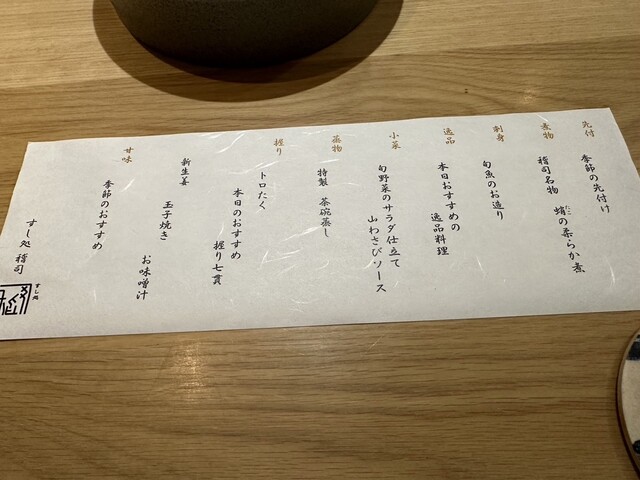 先付
季節の先付け
煮物
福司名物 蛸の柔らか煮
たこ
刺身
旬魚のお造り
逸品
本日おすすめの
逸品料理
小菜
旬野菜のサラダ仕立て
山わさびソース
蒸物
特製 茶碗蒸し
握り
トロたく
本日のおすすめ
握り七貫
新生姜
玉子焼き
お味噌汁
甘味
季節のおすすめ
すし処 福司
すし処